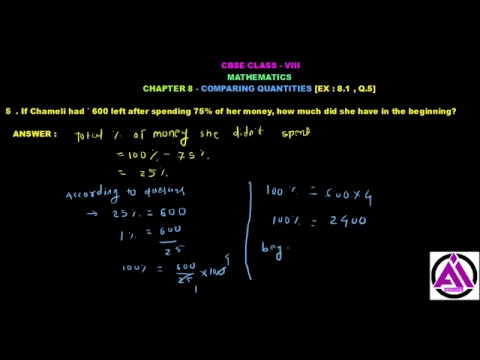 CBSE CLASS - VIII
MATHEMATICS
CHAPTER 8 - COMPARING QUANTITIES [EX : 8.1 , Q.5]
5 . If Chameli had ` 600 left after spending 75% of her money, how much did she have in the beginning?
ANSWER : Total % of money she didn't spend
= 100% - 75%
= 25%
According to question
→ 25% = 600
1% = 600/25
100% = 600/25 × 100 4
1
100% = 600 × 4
100% = 2400
beg
AI